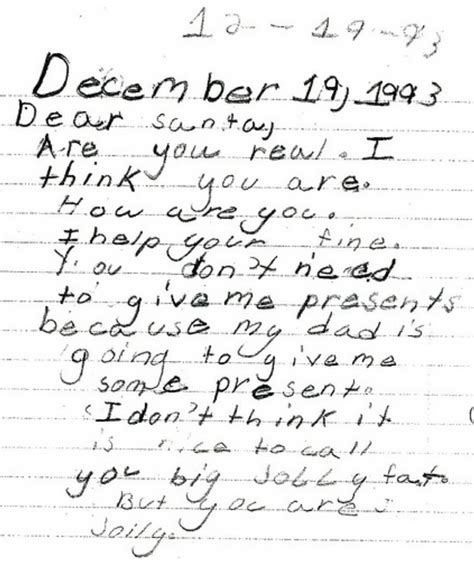 12-19-93
December 19, 1993
Dear santa,
Are you real. I
think you are.
How are you.
I help your fine.
You don't need
to give me presents
because my dad is
going to give me
some present.
I don't think it
is nice to call
you big jolly fat.
But you are
Jolly.